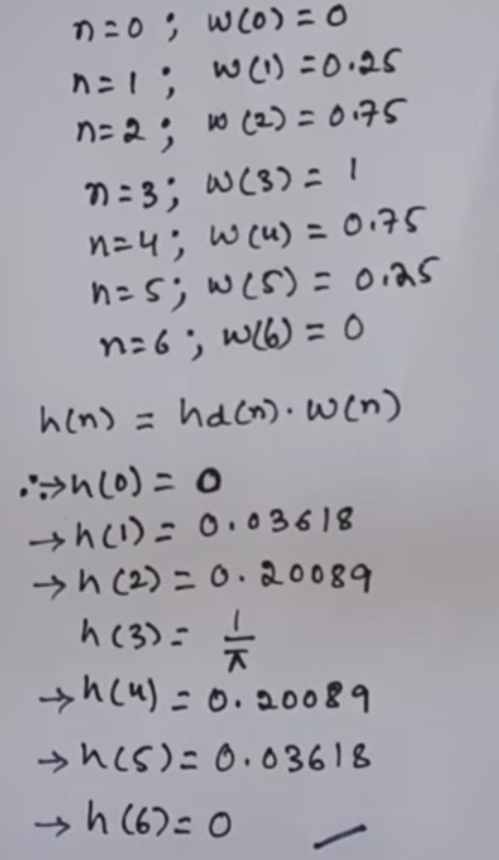 n=0 ; w(0) = 0
n=1 ; w(1) = 0.25
n=2 ; w(2) = 0.75
n=3 ; w(3) = 1
n=4 ; w(4) = 0.75
n=5 ; w(5) = 0.25
n=6 ; w(6) = 0
h(n) = hd(n). w(n)
∴→h(0) = 0
→h(1) = 0.03618
→h(2) = 0.20089
h(3) = 1/π
→h(4) = 0.20089
→h(5) = 0.03618
→h(6) = 0